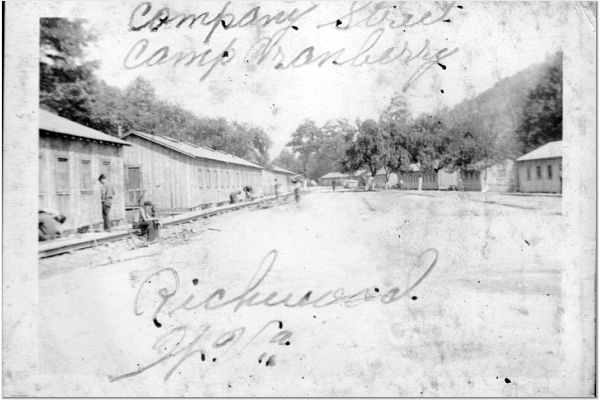 Company Street
Camp Cranberry
Richwood
W. Va